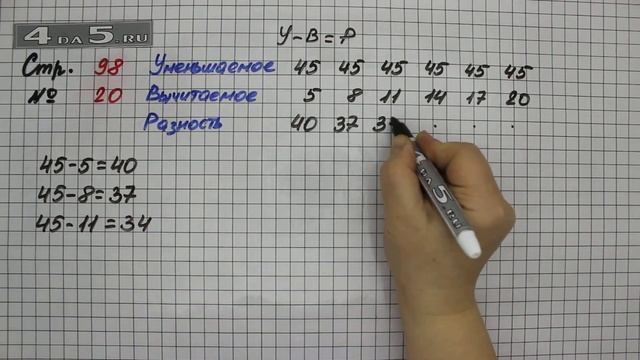 4 DA 5.RU
У-В=Р
Стр. 98 Уменьшаемое 45 45 45 45 45 45
№ 20 Вычитаемое 5 8 11 14 17 20
Разность 40 37 3 . . .
45-5=40
45-8=37
45-11=34
DA 5.RU